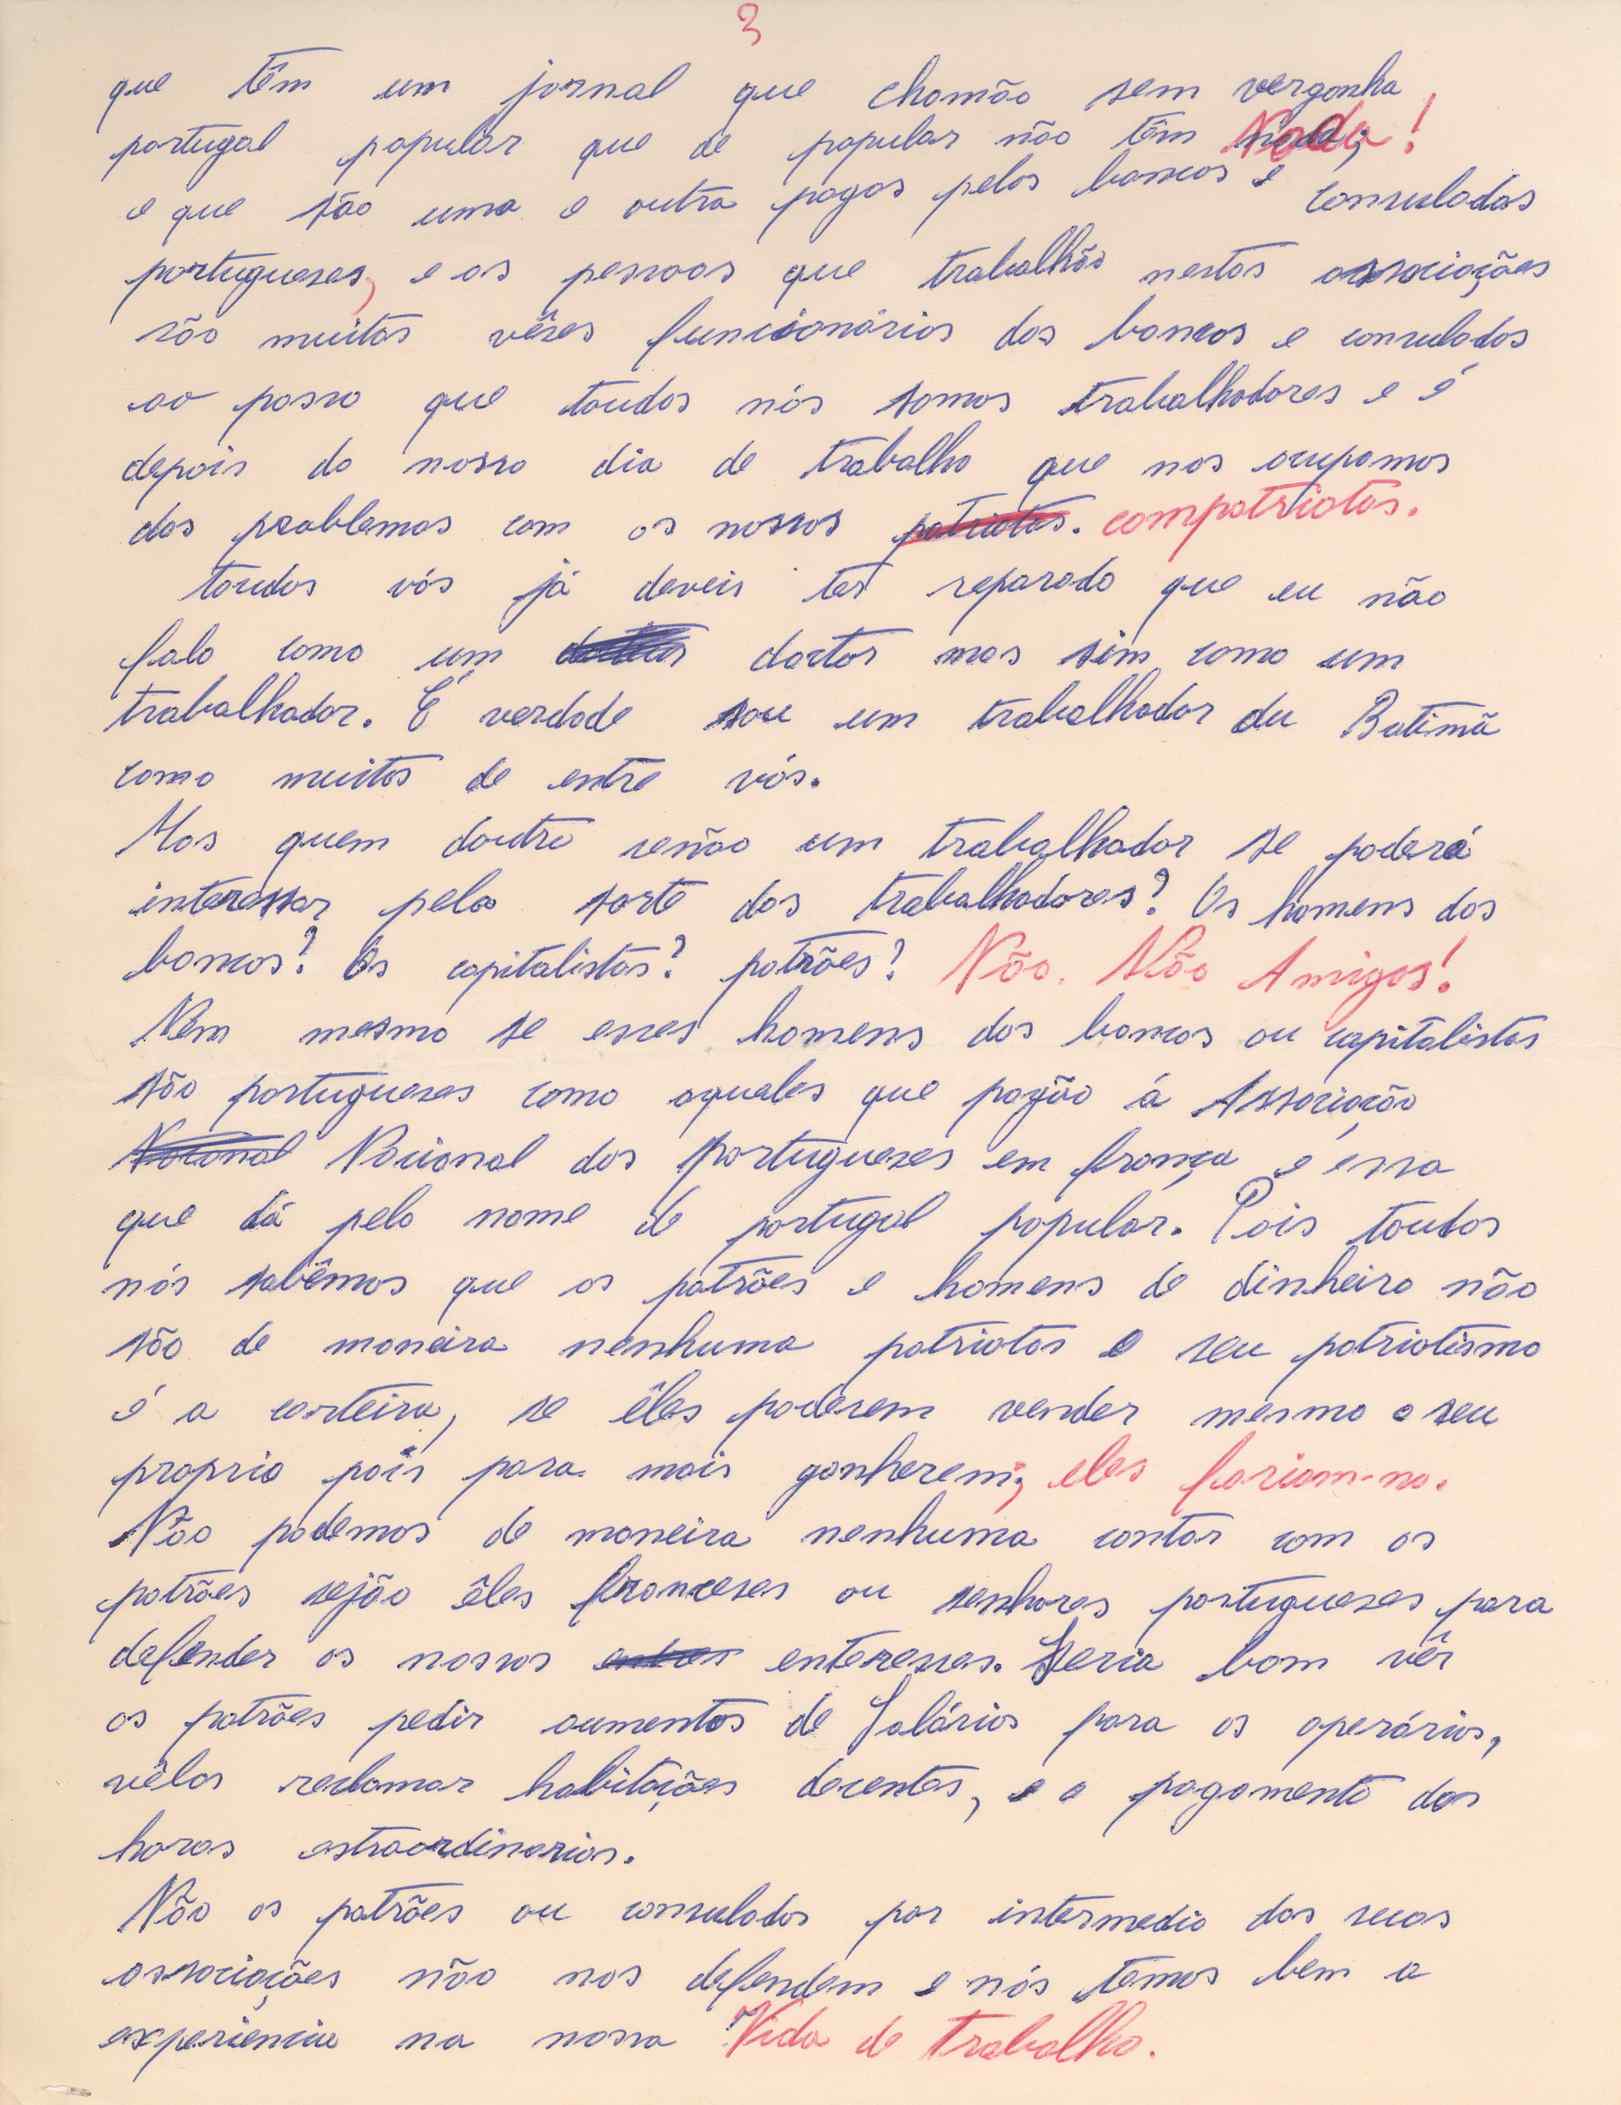 3
que têm um jornal que chamão sem vergonha
portugal popular que de popular não têm Nada!
e que são uma e outra pagas pelos bancos e consulados
portugueses, e as pessoas que trabalhão nestas associações
são muitas vêzes funcionários dos bancos e consulados
ao passo que toudos nós somos trabalhadores e é
depois do nosso dia de trabalho que nos ocupamos
dos problemas com os nossos patriotas. compatriotas.
toudos vós já deveis ter reparado que eu não
falo como um doctor mas sim como um
trabalhador. É verdade sou um trabalhador du Batimã
como muitos de entre vós.
Mas quem doutro senão um trabalhador se poderá
interessar pela sorte dos trabalhadores? Os homens dos
bancos? Os capitalistas? patrões? Não. Não Amigos!
Nem mesmo se esses homens dos bancos ou capitalistas
são portugueses como aqueles que pagão á Associação
Nacional Nacional dos portugueses em frança e éssa
que dá pelo nome de portugal popular. Pois toudos
nós sabêmos que os patrões e homens de dinheiro não
são de maneira nenhuma patriotas o seu patriotismo
é a carteira, se êles poderem vender mesmo o seu
proprio pais para mais ganherem; eles fariam-no.
Não podemos de maneira nenhuma contar com os
patrões sejão êles franceses ou senhores portugueses para
defender os nossos enteresses. Seria bom vêr
os patrões pedir aumentos de Salários para os operários,
vêlos reclamar habitações decentes, e o pagamento das
horas estraordinarias.
Não os patrões ou consulados por intermedio das suas
associações não nos defendem e nós temos bem a
experiencia na nossa Vida de trabalho.